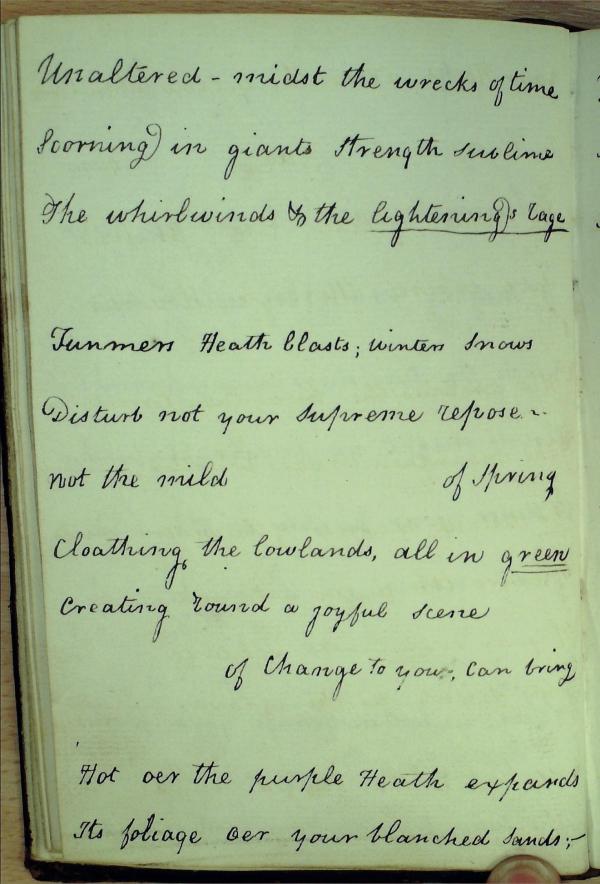 Unaltered - midst the wrecks of time
Scorning in giants strength sublime
The whirlwinds & the lightening's rage
Funmers Heath blasts; winters snows
Disturb not your supreme repose -
not the mild of Spring
Cloathing the lowlands, all in green
Creating round a joyful scene
of Change to you, can bring
Hot oer the purple Heath expands
Its foliage oer your blanched sands;-